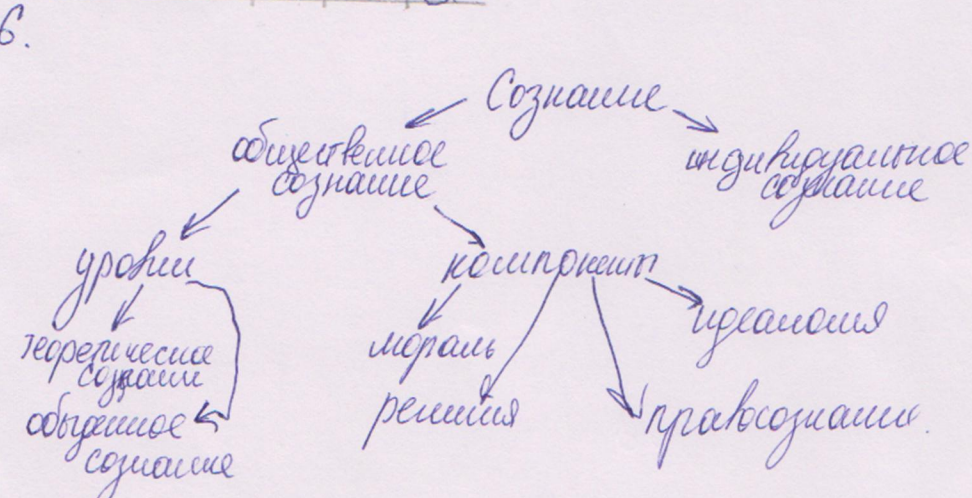 6.
Сознание
общественное
сознание
индивидуальное
сознание
уровни
компоненты
теоретическое
сознание
обыденное
сознание
мораль
религия
идеология
правосознание.